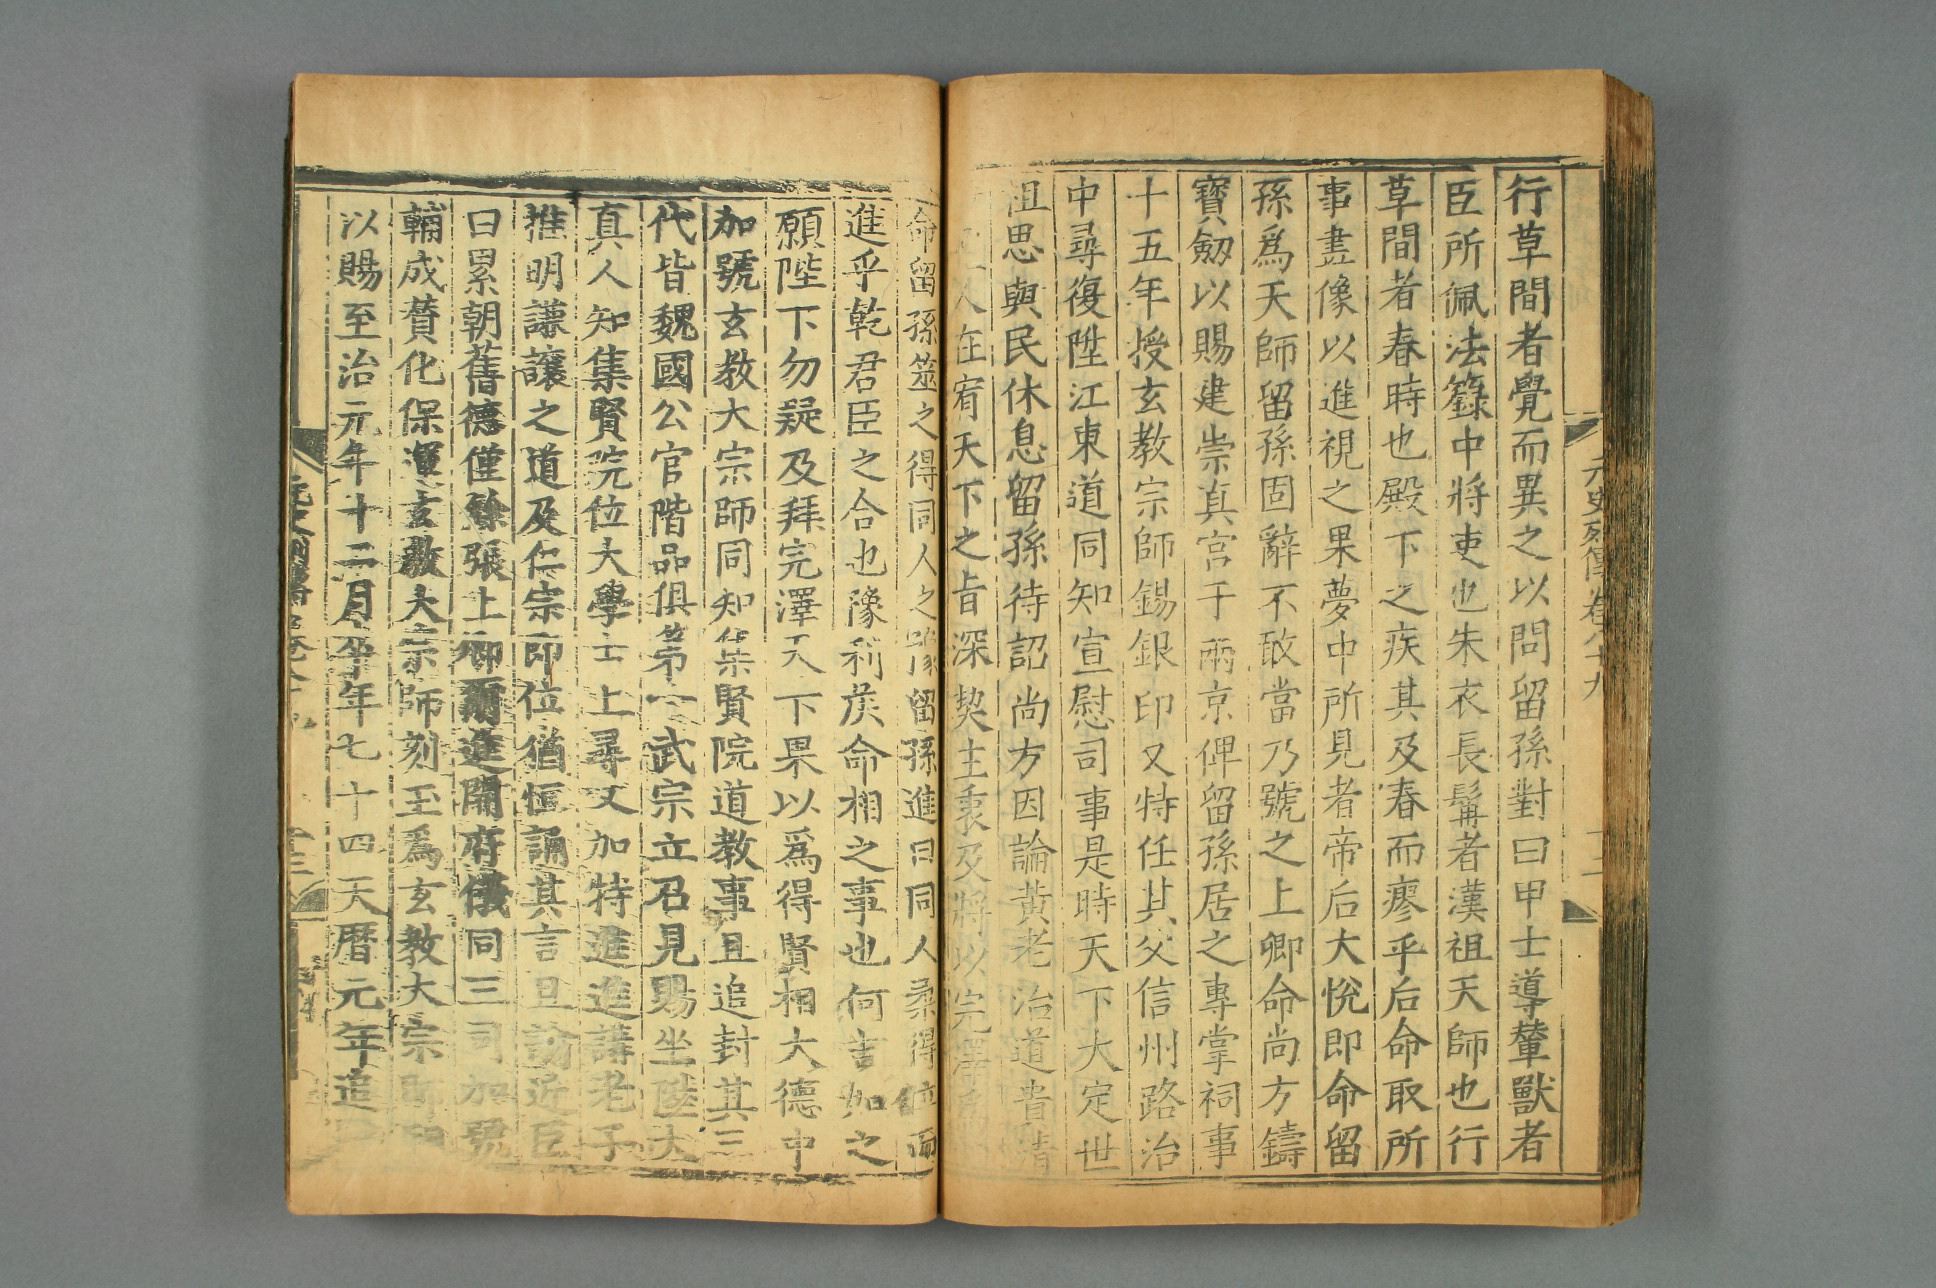 元史列傳卷八十九
十二
行草間者覺而異之以問留孫對曰甲士導輦獸者
臣所佩法籙中將吏也朱衣長髯者漢祖天師也行
草間者春時也殿下之疾其及春而瘳乎后命取所
事畫像以進視之果夢中所見者帝后大悅即命留
孫爲天師留孫固辭不敢當乃號之上卿命尚方鑄
寶劔以賜建崇真宮于兩京俾留孫居之專掌祠事
十五年授玄教宗師錫銀印又特任其父信州路治
中尋復陞江東道同知宣慰司事是時天下大定世
祖思與民休息留孫待詔尚方因論黃老治道貴清
人在宥天下之旨深契主衷及將以完澤
命留孫筮之得同人之豫留孫進曰同人柔得位而
進乎乾君臣之合也豫利侯命相之事也何吉如之
願陛下勿疑及拜完澤天下果以爲得賢相大德中
加號玄教大宗師同知集賢院道教事且追封其三
代皆魏國公官階品俱第一武宗立召見賜坐陞大
真人知集賢院位大學士上尋又加特進進講老子
推明謙讓之道及仁宗即位猶恒誦其言且諭近臣
曰累朝舊德僅餘張上卿爾進開府儀同三司加號
輔成贊化保運玄教大宗師刻玉爲玄教大宗師印
以賜至治元年十二月卒年七十四天曆元年追